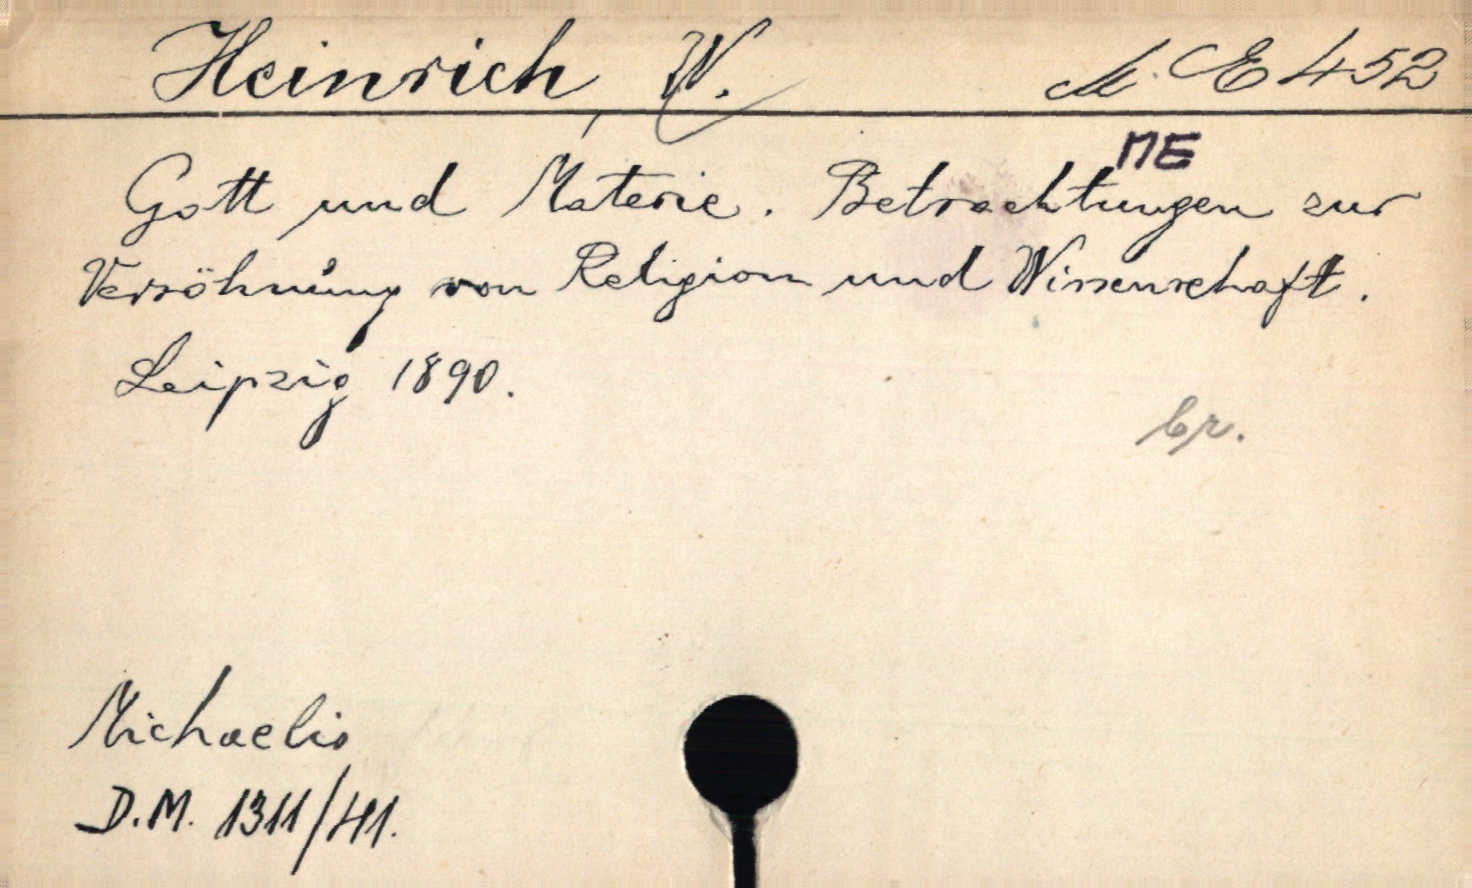 Heinrich, W. M. E 452
ME
Gott und Materie. Betrachtungen zur
Versöhnung von Religion und Wissenschaft.
Leipzig 1890.
br.
Michaelis
D.M. 1311/41.